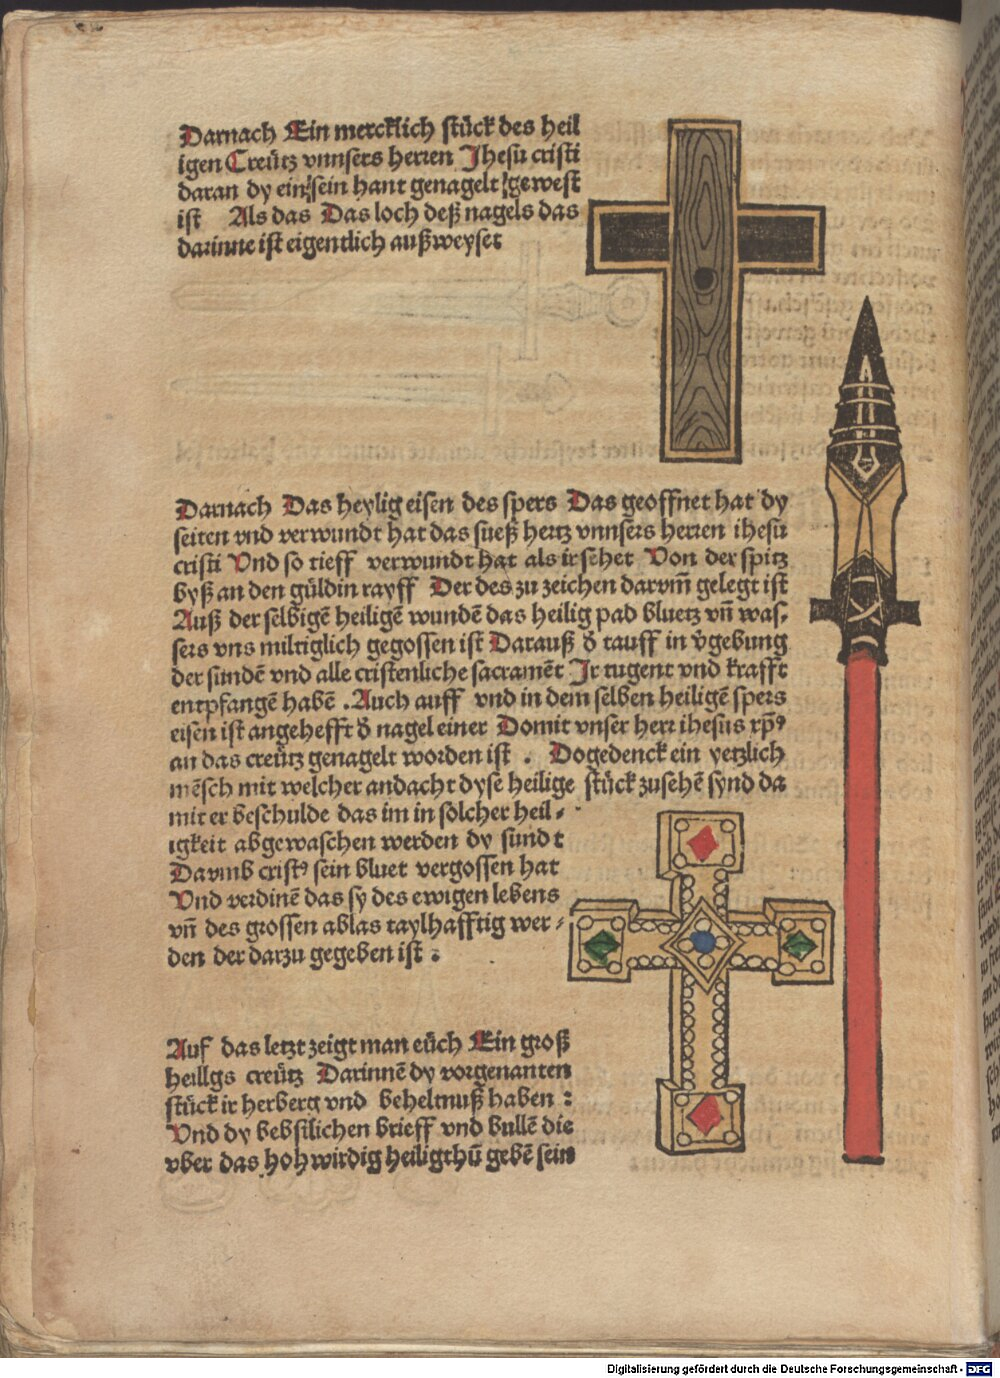 Darnach Ein mercklich stück des heil
igen Creütz vnnsers herren Jhesu cristi
daran dy ein sein hant genagelt gewest
ist Als das Das loch deß nagels das
darinne ist eigentlich außweyset
Darnach Das heylig eisen des spers Das geoffnet hat dy
seiten vnd verwundt hat das sueß hertz vnnsers herren ihesu
cristi Vnd so tieff verwundt hat als ir sehet Von der spitz
byß an den güldin rayff Der des zu zeichen darvm̄ gelegt ist
Auß der selbigē heiligē wundē das heilig pad bluetz vn̄ was-
sers vns miltiglich gegossen ist Darauß d̛ tauff in v̛gebung
der sundē vnd alle cristenliche sacramēt Jr tugent vnd krafft
entpfangē habē . Auch auff vnd in dem selben heiligē spers
eisen ist angehefft d̛ nagel einer Domit vnser herr ihesus xp̄ꝰ
an das creütz genagelt worden ist . Dogedenck ein yetzlich
mēsch mit welcher andacht dyse heilige stück zusehē synd da
mit er beschulde das im in solcher heil-
igkeit abgewaschen werden dy sund t
Darumb cristꝰ sein bluet vergossen hat
Vnd verdinē das sy des ewigen lebens
vn̄ des grossen ablas taylhafftig wer-
den der darzu gegeben ist :
Auf das letzt zeigt man eüch Ein groß
heillgs creütz Darinnē dy vorgenanten
stück ir herberg vnd beheltnuß haben :
Vnd dy bebstlichen brieff vnd bullē die
vber das hohwirdig heiligthū gebē sein
Digitalisierung gefördert durch die Deutsche Forschungsgemeinschaft - DFG